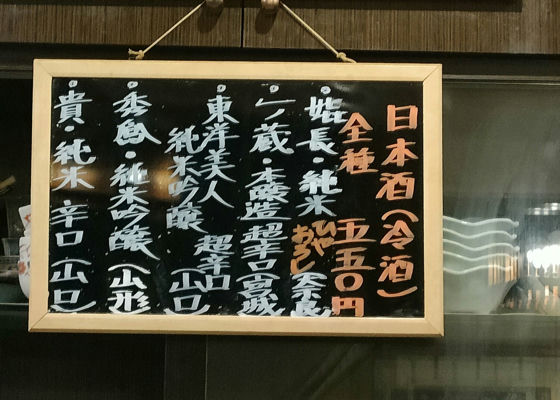 日本酒(冷酒)
全種 五五〇円
長・純米 ひやおろし(奈良)
一ノ蔵・本醸造 超辛口(宮城)
東洋美人 純米吟醸 超辛口(山口)
秀鳳・純米吟醸(山形)
貴・純米 辛口(山口)